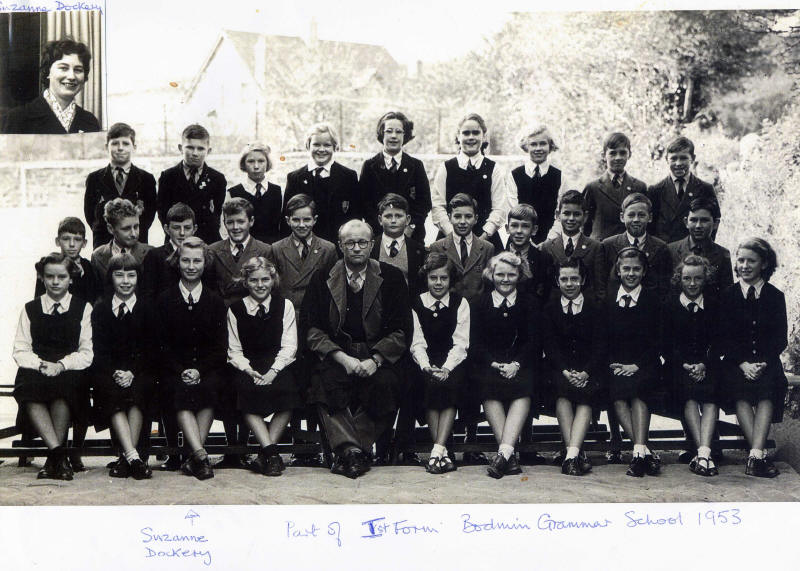 Suzanne Dockery
Suzanne
Dockery
Part of Ist Form Bodmin Grammar School 1953